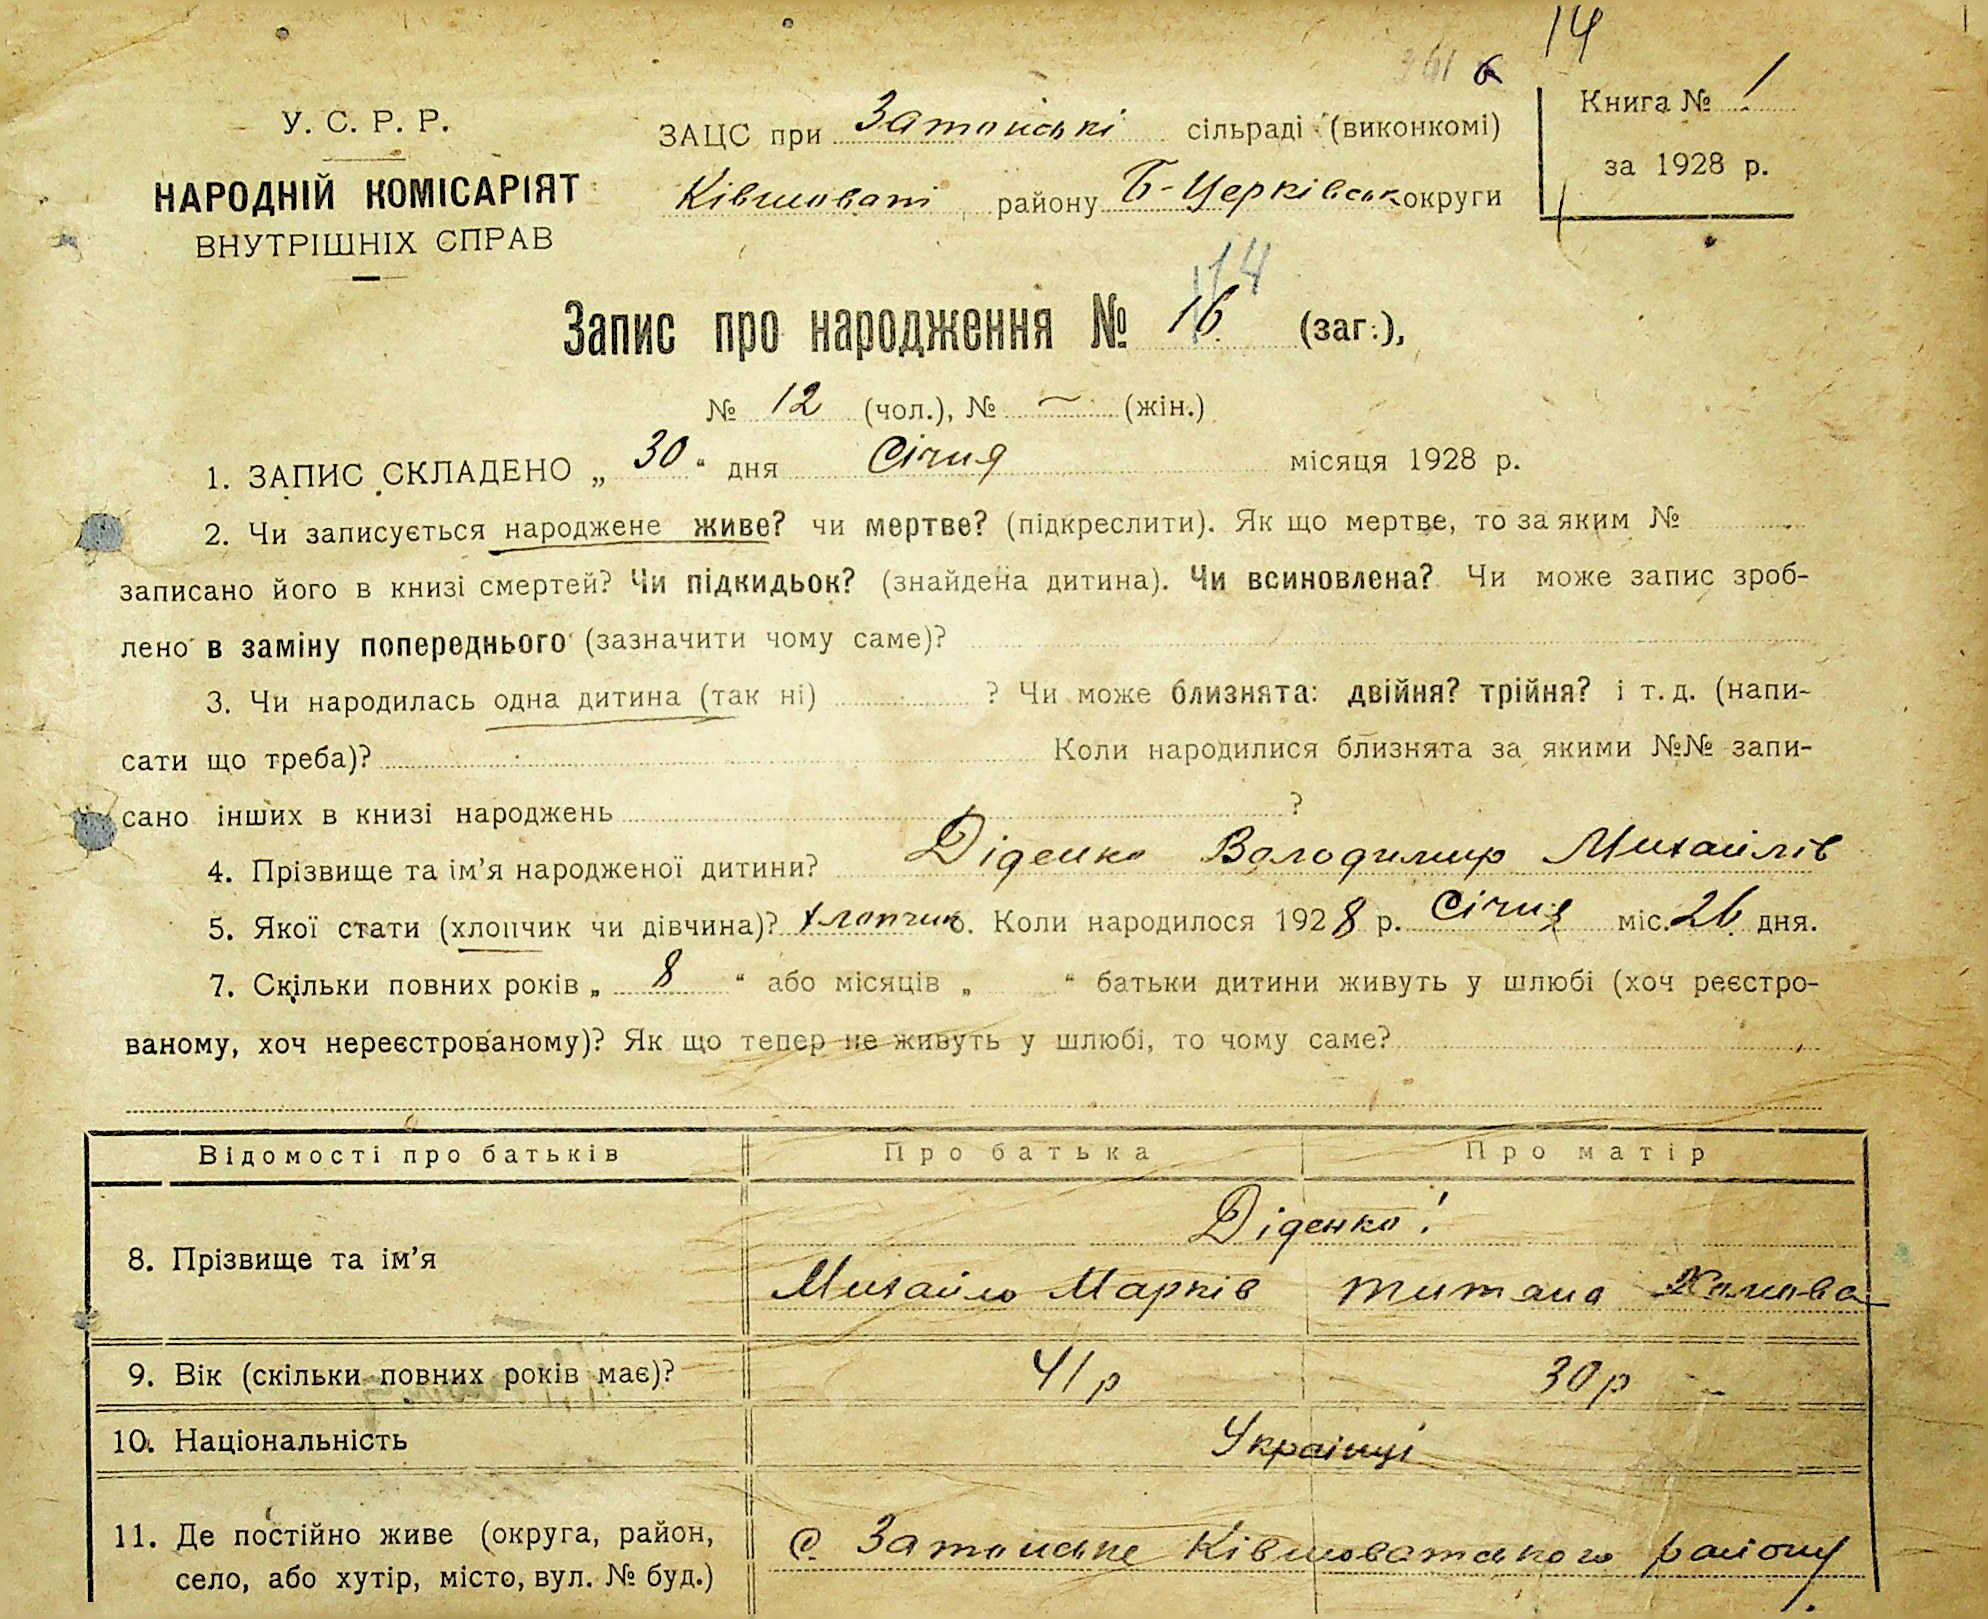 14
361 6
У. С. Р. Р.
НАРОДНІЙ КОМІСАРІЯТ
ВНУТРІШНІХ СПРАВ
ЗАЦС при Затонські сільраді (виконкомі)
Ківшоваті району Б-Церківськ округи
Книга № 1
за 1928 р.
14
Запис про народження № 16 (заг.),
№ 12 (чол.), № — (жін.)
1. ЗАПИС СКЛАДЕНО „ 30 “ дня Січня місяця 1928 р.
2. Чи записується народжене живе? чи мертве? (підкреслити). Як що мертве, то за яким №
записано його в книзі смертей? Чи підкидьок? (знайдена дитина). Чи всиновлена? Чи може запис зроб-
лено в заміну попереднього (зазначити чому саме)?
3. Чи народилась одна дитина (так ні) ? Чи може близнята: двійня? трійня? і т. д. (напи-
сати що треба)? Коли народилися близнята за якими №№ запи-
сано інших в книзі народжень ?
4. Прізвище та ім’я народженої дитини? Діденко Володимир Михайлів
5. Якої стати (хлопчик чи дівчина)? хлопчик 6. Коли народилося 1928 р. Січня міс. 26 дня.
7. Скільки повних років „ 8 “ або місяців „ “ батьки дитини живуть у шлюбі (хоч реєстро-
ваному, хоч нереєстрованому)? Як що тепер не живуть у шлюбі, то чому саме?
Відомості про батьків Про батька Про матір
Діденко!
8. Прізвище та ім’я
Михайло Марків Титана
9. Вік (скільки повних років має)? 41 р 30 р
10. Національність Українці
11. Де постійно живе (округа, район,
село, або хутір, місто, вул. № буд.)
С. Затонське Ківшоватського району